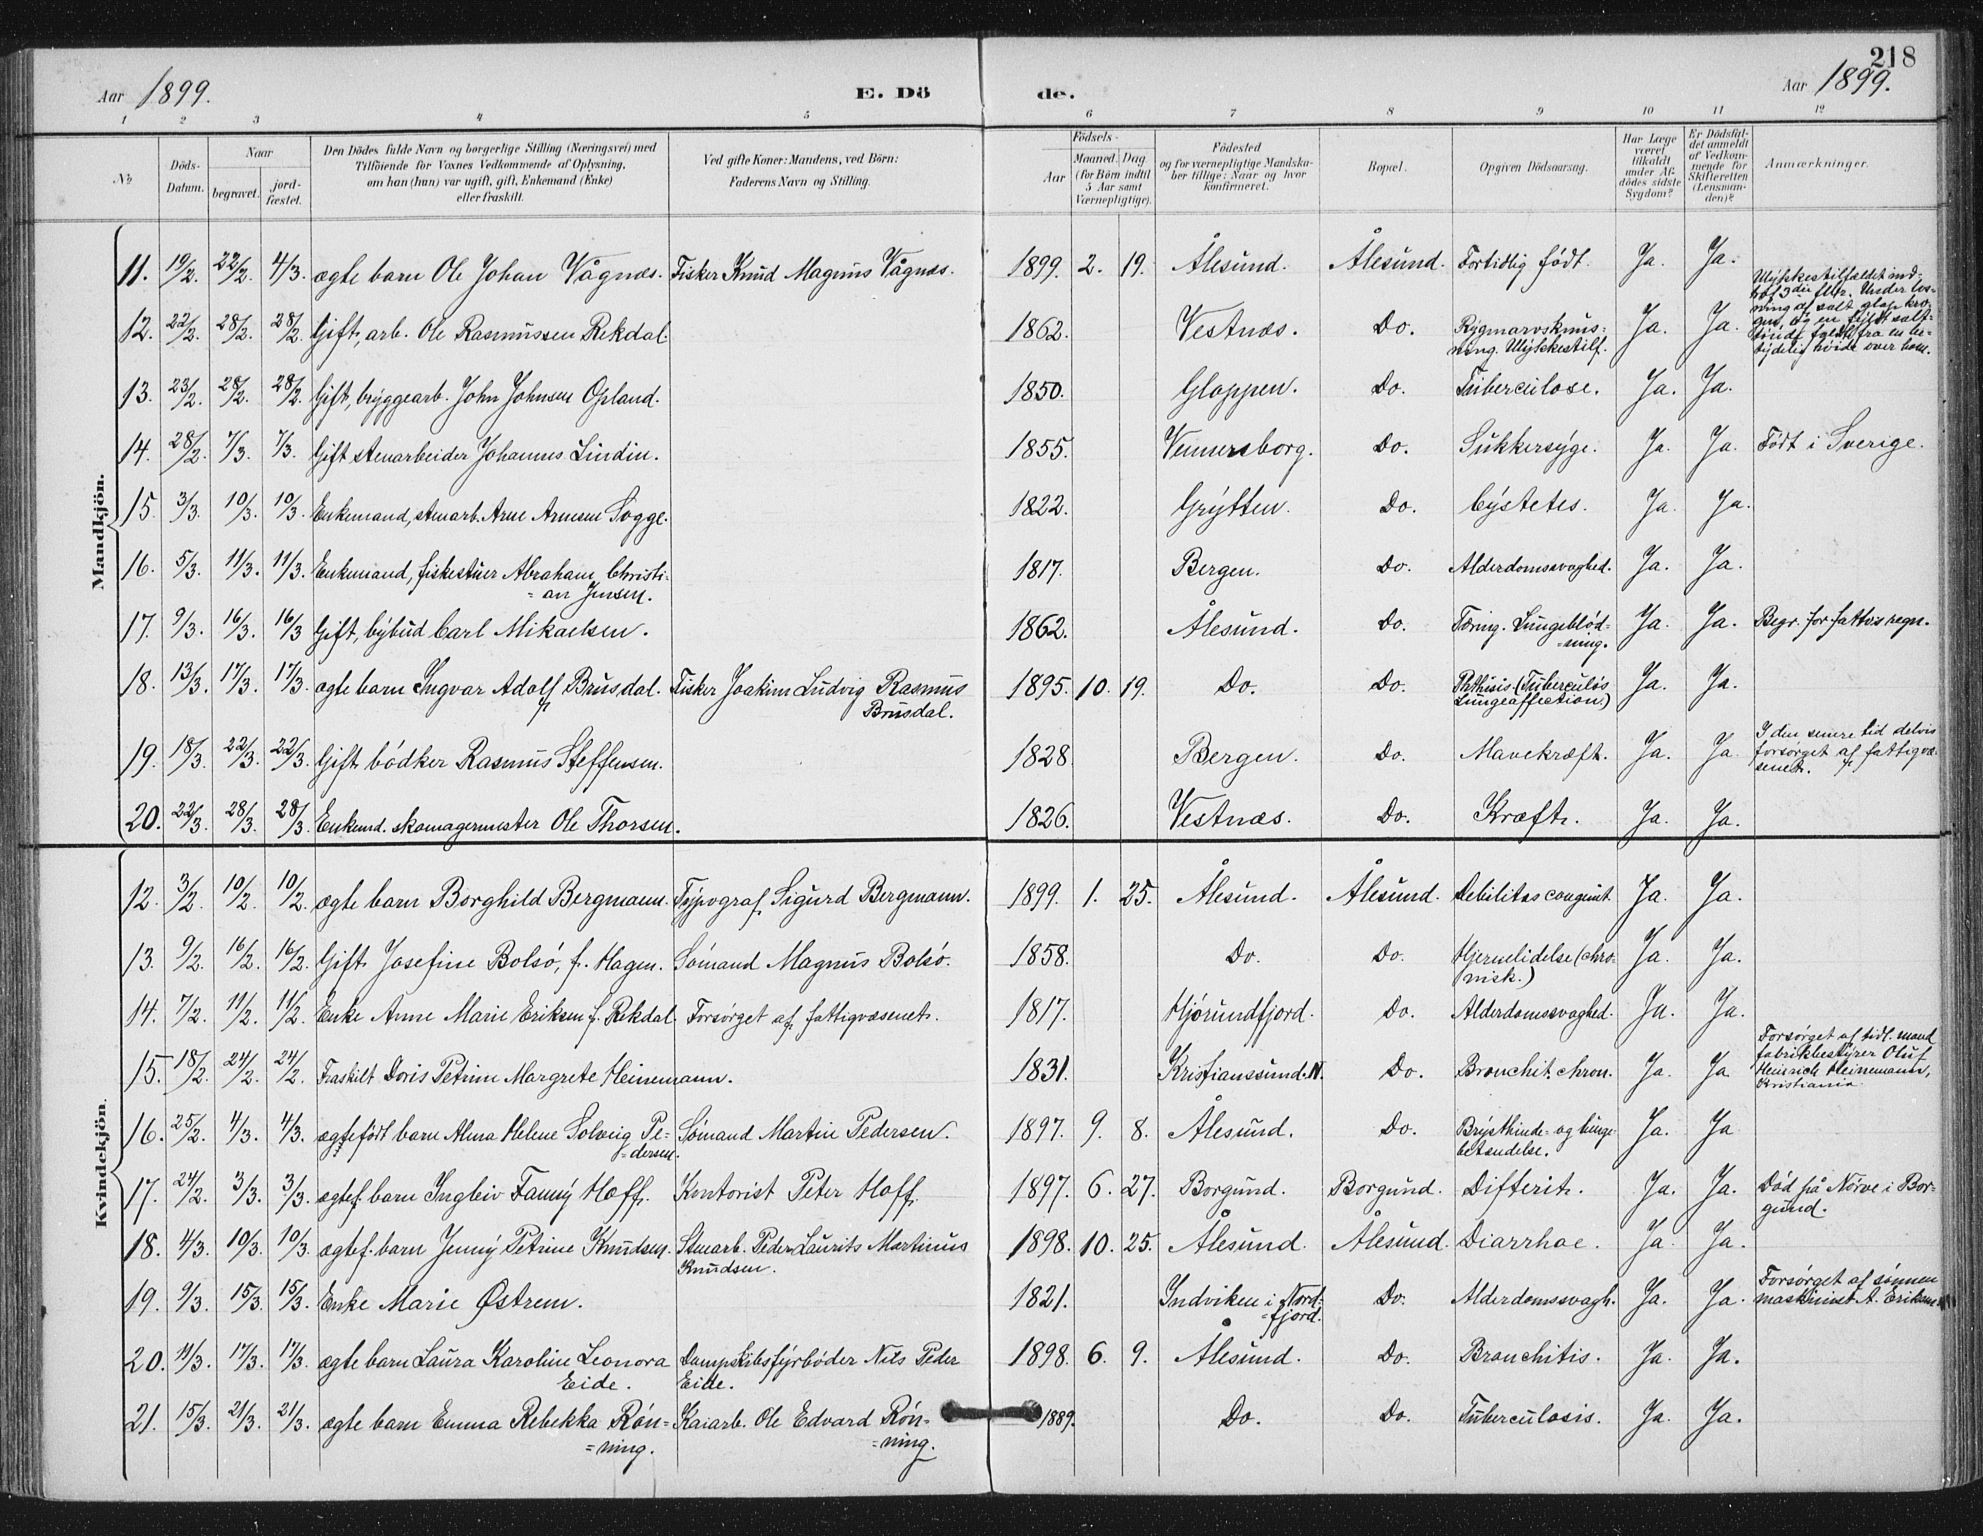 218
Aar 1899.
E. Dö de.
Aar 1899.
1 2 3 4 5 6 7 8 9 10 11 12
№
Döds-Datum.
Naar
begravet.
jord-fæstet.
Den Dödes fulde Navn og borgerlige Stilling (Næringsvei) med
Tilföiende for Voxnes Vedkommende af Oplysning,
om han (hun) var ugift, gift, Enkemand (Enke)
eller fraskilt.
Ved gifte Koner: Mandens, ved Börn:
Faderens Navn og Stilling.
Födsels-
Aar
Maaned. Dag
(for Börn indtil
5 Aar samt
Værnepligtige).
Födested
og for værnepligtige Mandska-
ber tillige: Naar og hvor
konfirmeret.
Bopæl.
Opgiven Dödsaarsag.
Har Læge
været
tilkaldt
under Af-
dödes sidste
Sygdom?
Er Dödsfal-
det anmeldt
af Vedkom-
mende for
Skifteretten
(Lensman-
den)?
Anmærkninger.
Mandkjön.
11. 19/2. 22/2. 4/3. ægte barn Ole Johan Vågnæs. Fisker Knud Magnus Vågnæs. 1899. 2. 19. Ålesund. Ålesund. Fortidlig født. Ja. Ja.
12. 22/2. 28/2. 28/2. Gift, arb. Ole Rasmussen Rekdal 1862. Vestnæs. Do. Rygmarvsknus-
ning. Ulykkestilf. Ja. Ja. Ulykkestilfældet ind-
Under los-
ning af salt glap kro-
gen, og en fyldt salt-
tønde faldt fra en be-
tydelig høide over ham.
13. 23/2. 28/2. 28/2. Gift, bryggearb. John Johnsen Opland. 1850. Gloppen. Do. Tuberculose. Ja. Ja.
14. 28/2. 7/3. 7/3. Gift stenarbeider Johannes Lindin. 1855. Vennersborg. Do. Sukkersyge. Ja. Ja. Født i Sverige.
15. 3/3. 10/3. 10/3. Enkemand, stenarb. Arne Arnesen Sogge. 1822. Grytten. Do. Cystetes. Ja. Ja.
16. 5/3. 11/3. 11/3. Enkemand, fiskestuer Abraham Christi-
=an Jensen. 1817. Bergen. Do. Alderdomssvaghed. Ja. Ja.
17. 9/3. 16/3. 16/3 Gift, bybud Carl Mikaelsen. 1862. Ålesund. Do. Tæring. Lungeblød-
=ning. Ja. Ja. Begr. for fattigv. regn.
18. 13/3. 17/3. 17/3. ægte barn Ingvar Adolf Brusdal. Fisker Joakim Ludvig Rasmus
Brusdal. 1895. 10. 19. Do. Do. Phthisis (Tuberculøs
Lungeaffection) Ja. Ja.
19. 18/3. 22/3. 22/3. Gift bødker Rasmus Steffensen. 1828. Bergen. Do. Mavekræft. Ja. Ja. I den senere tid delvis
forsørget af fattigvæ-
senet.
20. 22/3. 28/3. 28/3. Enkemd. skomagermester Ole Thorsen. 1826. Vestnæs. Do. Kræft. Ja. Ja.
Kvindekjön.
12. 3/2. 10/2. 10/2. ægte barn Borghild Bergmann. Typograf Sigurd Bergmann. 1899. 1. 25. Ålesund. Ålesund. Debilitas congenit. Ja. Ja.
13. 9/2. 16/2. 16/2. Gift Josefine Bolsø, f. Hagen. Sømand Magnus Bolsø. 1858. Do. Do. Hjernelidelse (chro-
nisk.) Ja. Ja.
14. 7/2. 11/2. 11/2. Enke Anne Marie Eriksen f. Rekdal. Forsørget af fattigvæsenet. 1817. Hjørundfjord. Do. Alderdomssvaghed. Ja. Ja.
15. 18/2. 24/2. 24/2. Fraskilt Doris Petrine Margrete Heinemann. 1831. Kristianssund. N. Do. Bronchit. chron. Ja. Ja Forsørget af tidl. mand
fabrikbestyrer Oluf
Heinrich Heinemann,
Kristiania.
16. 25/2. 4/3. 4/3. ægtefødt barn Alma Helene Solveig Pe-
=dersen. Sømand Martin Pedersen. 1897. 9. 8. Ålesund. Do. Brysthinde- og lunge-
betændelse. Ja. Ja
17. 24/2. 3/3. 3/3. ægtef. barn Ingleiv Fanny Hoff. Kontorist Peter Hoff. 1897. 6. 27. Borgund. Borgund. Difterit. Ja. Ja. Død på Nørve i Bor-
gund.
18. 4/3. 10/3. 10/3. ægtef. barn Jenny Petrine Knudsen. Stenarb. Peder Laurits Martinus
Knudsen. 1898. 10. 25. Ålesund. Ålesund. Diarrhoe. Ja. Ja.
19. 9/3. 15/3. 15/3. Enke Marie Østrem. 1821. Indviken i Nord-
=fjord. Do. Alderdomssvagh. Ja. Ja. Forsørget af sønnen
maskinist A. Eriksen
20. 11/3. 17/3. 17/3. ægte barn Laura Karoline Leonora
Eide. Dampskibsfyrbøder Nils Peder
Eide. 1898. 6. 9. Ålesund. Do. Bronchitis. Ja. Ja.
21. 15/3. 21/3. 21/3. ægte barn Emma Rebekka Røn-
=ning. Kaiarb. Ole Edvard Røn-
=ning. 1889. Do. Do. Tuberculosis. Ja. Ja.